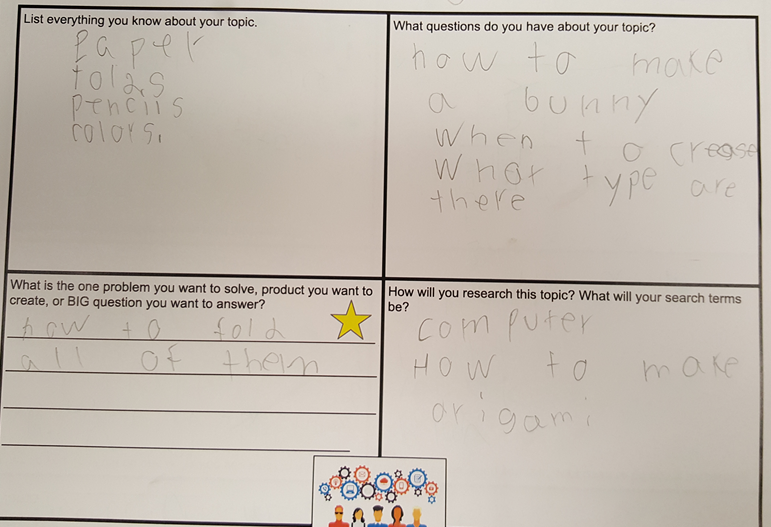 List everything you know about your topic.
paper
folds
pencils
colors.
What questions do you have about your topic?
how to make
a bunny
when to crease
what type are
there
What is the one problem you want to solve, product you want to
create, or BIG question you want to answer?
how to fold
all of them
How will you research this topic? What will your search terms
be?
computer
How to make
origami